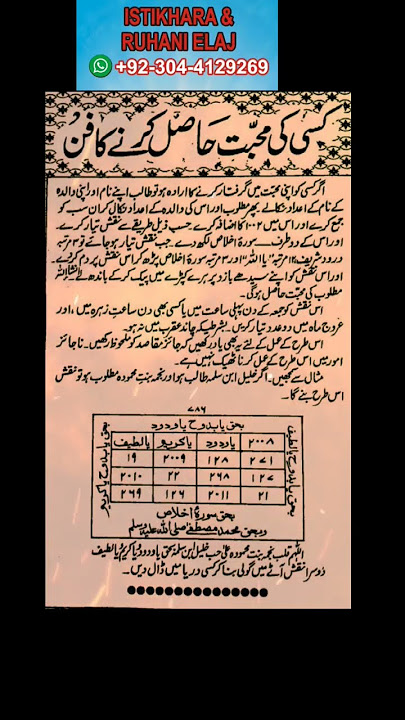 ISTIKHARA &
RUHANI ELAJ
+92-304-4129269
کسی کی محبت حاصل کرنے کا فن
اگر کسی کو اپنی محبت میں گرفتار کرنے کا ارادہ ہو تو طالب اپنے نام اور اپنی والدہ
کے نام کے اعداد نکالے۔ پھر مطلوب اور اس کی والدہ کے اعداد نکال کر ان سب کو
جمع کرے اور اس میں ۱۰۰۲ کا اضافہ کرے۔ حسب ذیل طریقے سے نقش تیار کرے
اور اس کے دو طرف سورۃ اخلاص لکھ دے۔ جب نقش تیار ہو جائے تو ۳ مرتبہ
درود شریف، ۱۲ مرتبہ "یا اللہ" اور ۳ مرتبہ سورۃ اخلاص پڑھ کر اس نقش پر دم کر دے۔
اور اس نقش کو اپنے سیدھے بازو پر ہرے کپڑے میں پیک کر کے باندھ لے انشاء اللہ
مطلوب کی محبت حاصل ہوگی۔
اس نقش کو جمعہ کے دن پہلی ساعت میں یا کسی بھی دن ساعت زہرہ میں، اور
عروج ماہ میں دو عدد تیار کریں۔ بشرطیکہ چاند عقرب میں نہ ہو۔
اس طرح کے عمل کے لئے یہ بھی یاد رکھیں کہ جائز مقاصد کو ملحوظ رکھیں۔ ناجائز
امور میں اس طرح کے عمل کرنا ٹھیک نہیں ہے۔
مثال سے سمجھیں۔ اگر خلیل ابن سلمہ طالب ہو اور نجمہ بنت محمودہ مطلوب ہو تو نقش
اس طرح بنے گا۔
۷۸۶
بحق یا بدوح یا ودود
بحق یا بدوح یا لطیف
بحق یا بدوح یا کریم
۲۰۰۸ یا ودود یا کریم یا لطیف
۲۷۱ ۱۲۸ ۲۰۰۹ ۱۹
۱۲۷ ۲۶۸ ۲۲ ۲۰۱۰
۲۱ ۲۰۱۱ ۱۲۶ ۲۶۹
بحق سورۃ اخلاص
وبحق محمد مصطفے صلی اللہ علیہ وسلم
اللھم قلب نجمہ بنت محمودہ علی حب خلیل ابن سلمہ بحق یا ودود یا کریم یا لطیف
دوسرا نقش آٹے میں گولی بنا کر کسی دریا میں ڈال دیں۔